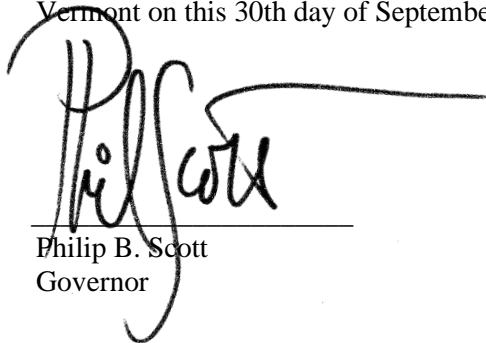 Vermont on this 30th day of Septembe
Phil Scott
Philip B. Scott
Governor